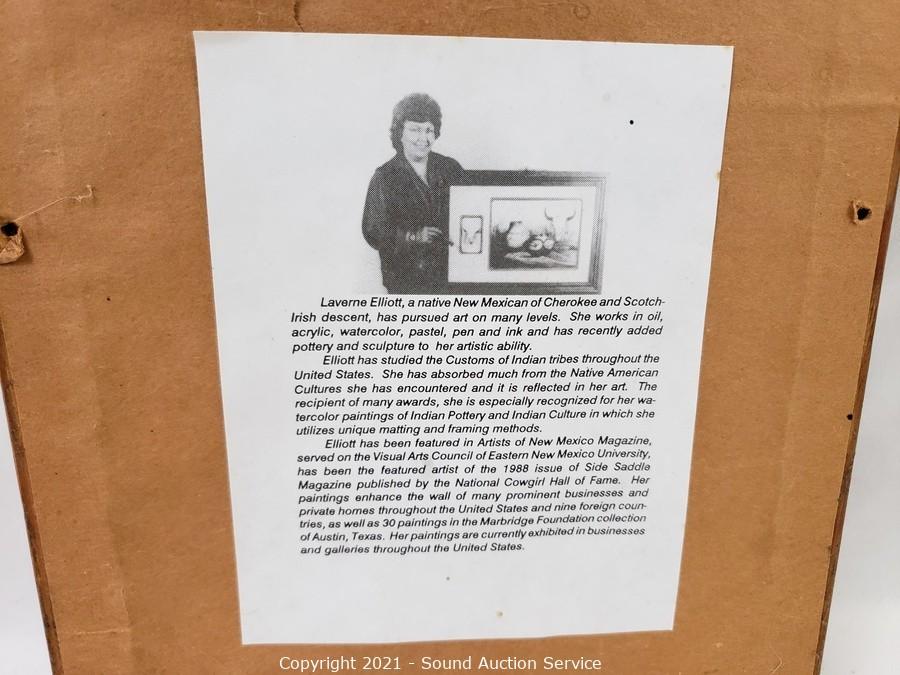 Laverne Elliott, a native New Mexican of Cherokee and Scotch-
Irish descent, has pursued art on many levels. She works in oil,
acrylic, watercolor, pastel, pen and ink and has recently added
pottery and sculpture to her artistic ability.
Elliott has studied the Customs of Indian tribes throughout the
United States. She has absorbed much from the Native American
Cultures she has encountered and it is reflected in her art. The
recipient of many awards, she is especially recognized for her wa-
tercolor paintings of Indian Pottery and Indian Culture in which she
utilizes unique matting and framing methods.
Elliott has been featured in Artists of New Mexico Magazine,
served on the Visual Arts Council of Eastern New Mexico University,
has been the featured artist of the 1988 issue of Side Saddle
Magazine published by the National Cowgirl Hall of Fame. Her
paintings enhance the wall of many prominent businesses and
private homes throughout the United States and nine foreign coun-
tries, as well as 30 paintings in the Marbridge Foundation collection
of Austin, Texas. Her paintings are currently exhibited in businesses
and galleries throughout the United States.
Copyright 2021 - Sound Auction Service